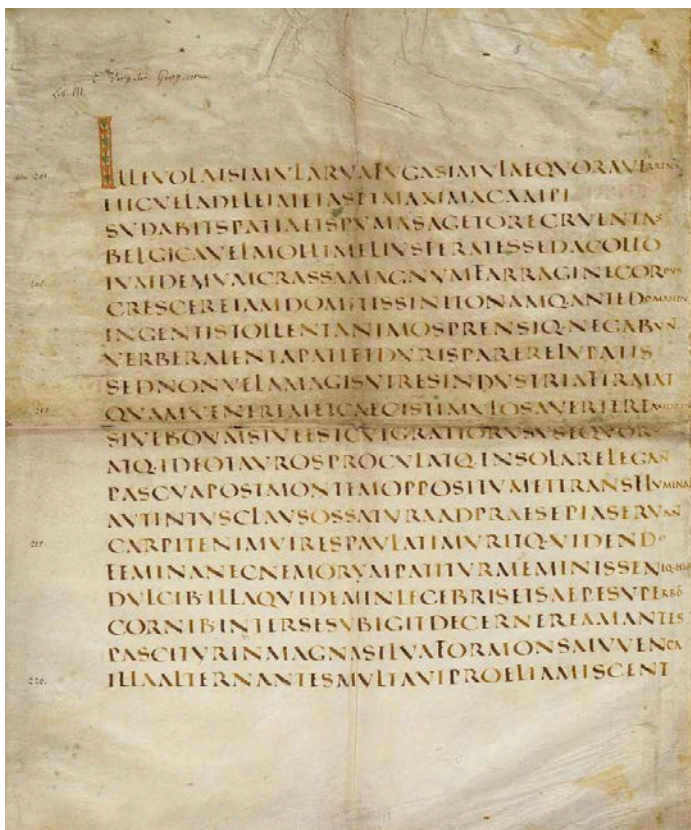 Virgilii Georgicorum
Lib. III.
201. ILLEVOLATSIMVLARVAFVGASIMVLAEQVORAVERRENS
HICVELADELEIMETASETMAXIMACAMPI
SVDABITSPATIAETSPVMASAGETORECRVENTAS
BELGICAVELMOLLIMELIVSFERATESSEDACOLLO
205. TVMDEMVMCRASSAMAGNVMFARRAGINECORPVS
CRESCEREIAMDOMITISSINITONAMQ·ANTEDOMANDV
INGENTISTOLLENTANIMOSPRENSIQ·NEGABVN
VERBERALENTAPATIETDVRISPARERELVPATIS
SEDNONVLLAMAGISVIRESINDVSTRIAFIRMAT
210. QVAMVENEREMETCAECISTIMVLOSAVERTEREAMORIS
SIVEBOVMSIVEESTCVIGRATIORVSVSEQVOR
ATQ·IDEOTAVROSPROCVLATQ·INSOLARELEGAN
PASCVAPOSTMONTEMOPPOSITVMETTRANSFLVMINA
AVTINTVSCLAVSOSSATVRAADPRAESEPIASERVAN
215. CARPITENIMVIRESPAVLATIMVRITQ·VIDENDO
FEMINANECNEMORVMPATITVRMEMINISSENEQ·HER
DVLCIBILLAQVIDEMINLECEBRISETSAEPESVPERBO
CORNIBINTERSESVBIGITDECERNEREAMANTES
PASCITVRINMAGNASILVAFORMONSAIVVENCA
220. ILLAALTERNANTESMVLTAVIPROELIAMISCENT